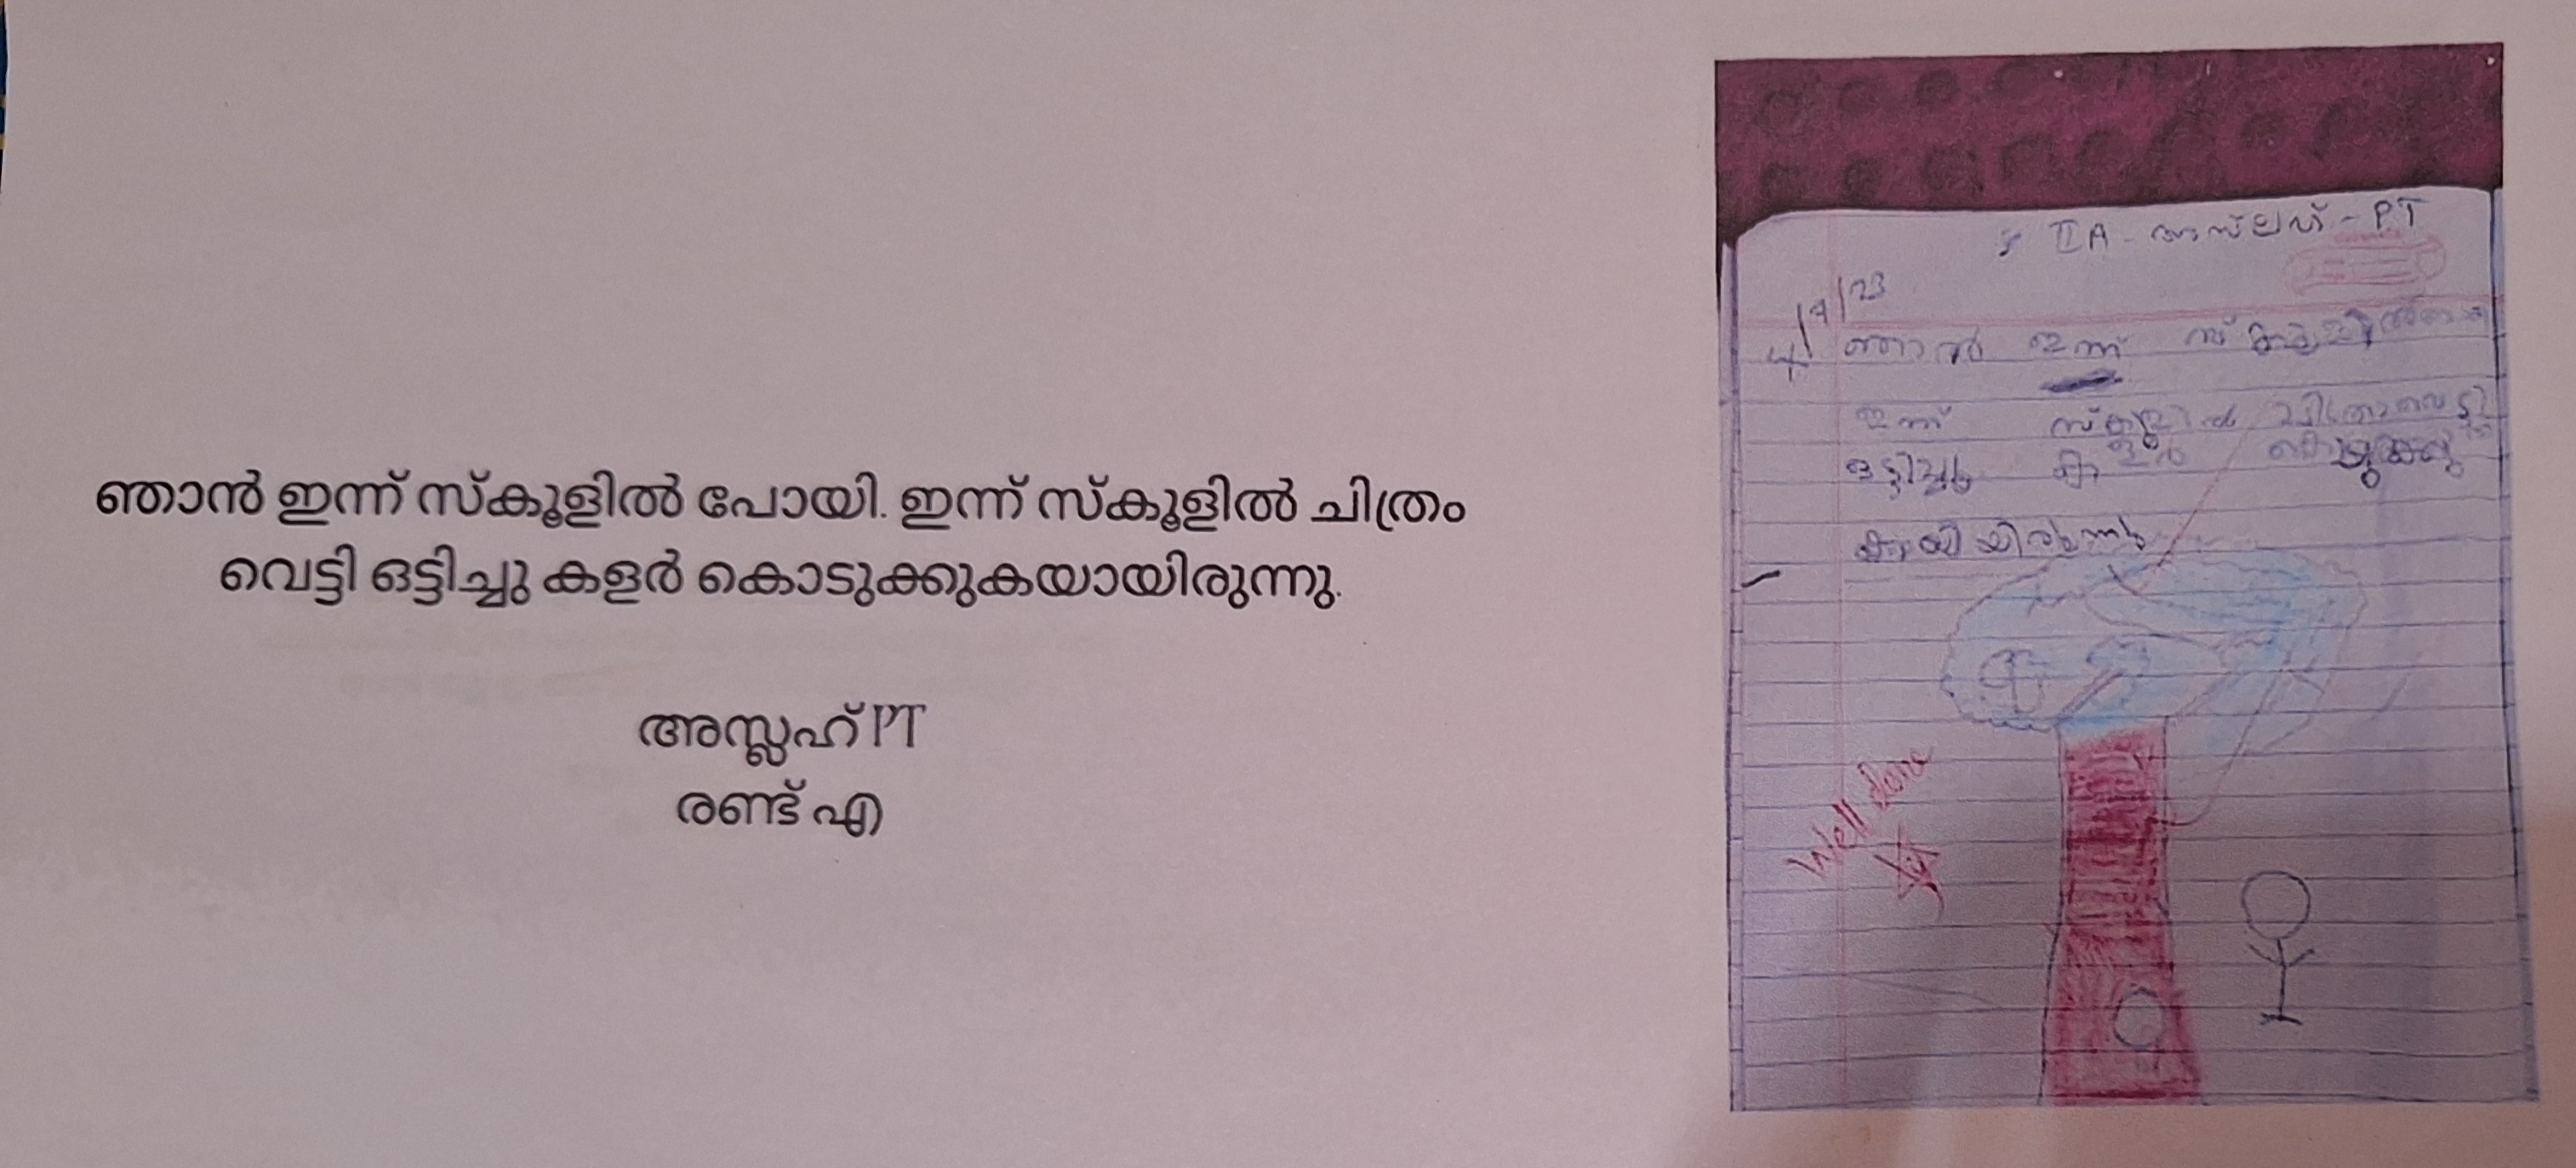 ഞാൻ ഇന്ന് സ്കൂളിൽ പോയി. ഇന്ന് സ്കൂളിൽ ചിത്രം
വെട്ടി ഒട്ടിച്ചു കളർ കൊടുക്കുകയായിരുന്നു.
അസ്ലഹ് PT
രണ്ട് എ
II A - അസ്ലഹ് - PT
4/7/23
ഞാൻ ഇന്ന്
ഇന്ന് സ്കൂളിൽ
ഒട്ടിച്ചു
Well done